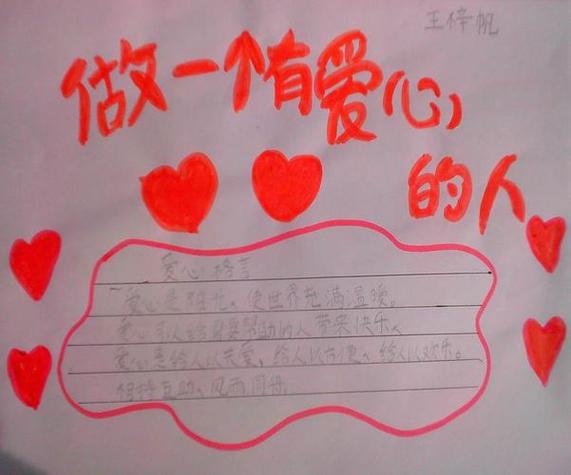 王梓帆
做一个有爱心
的人
爱心格言
爱心是阳光、使世界充满温暖。
爱心可以给需要帮助的人带来快乐、
爱心是给人以关爱，给人以方便、给人以欢乐。
相持互助、风雨同舟